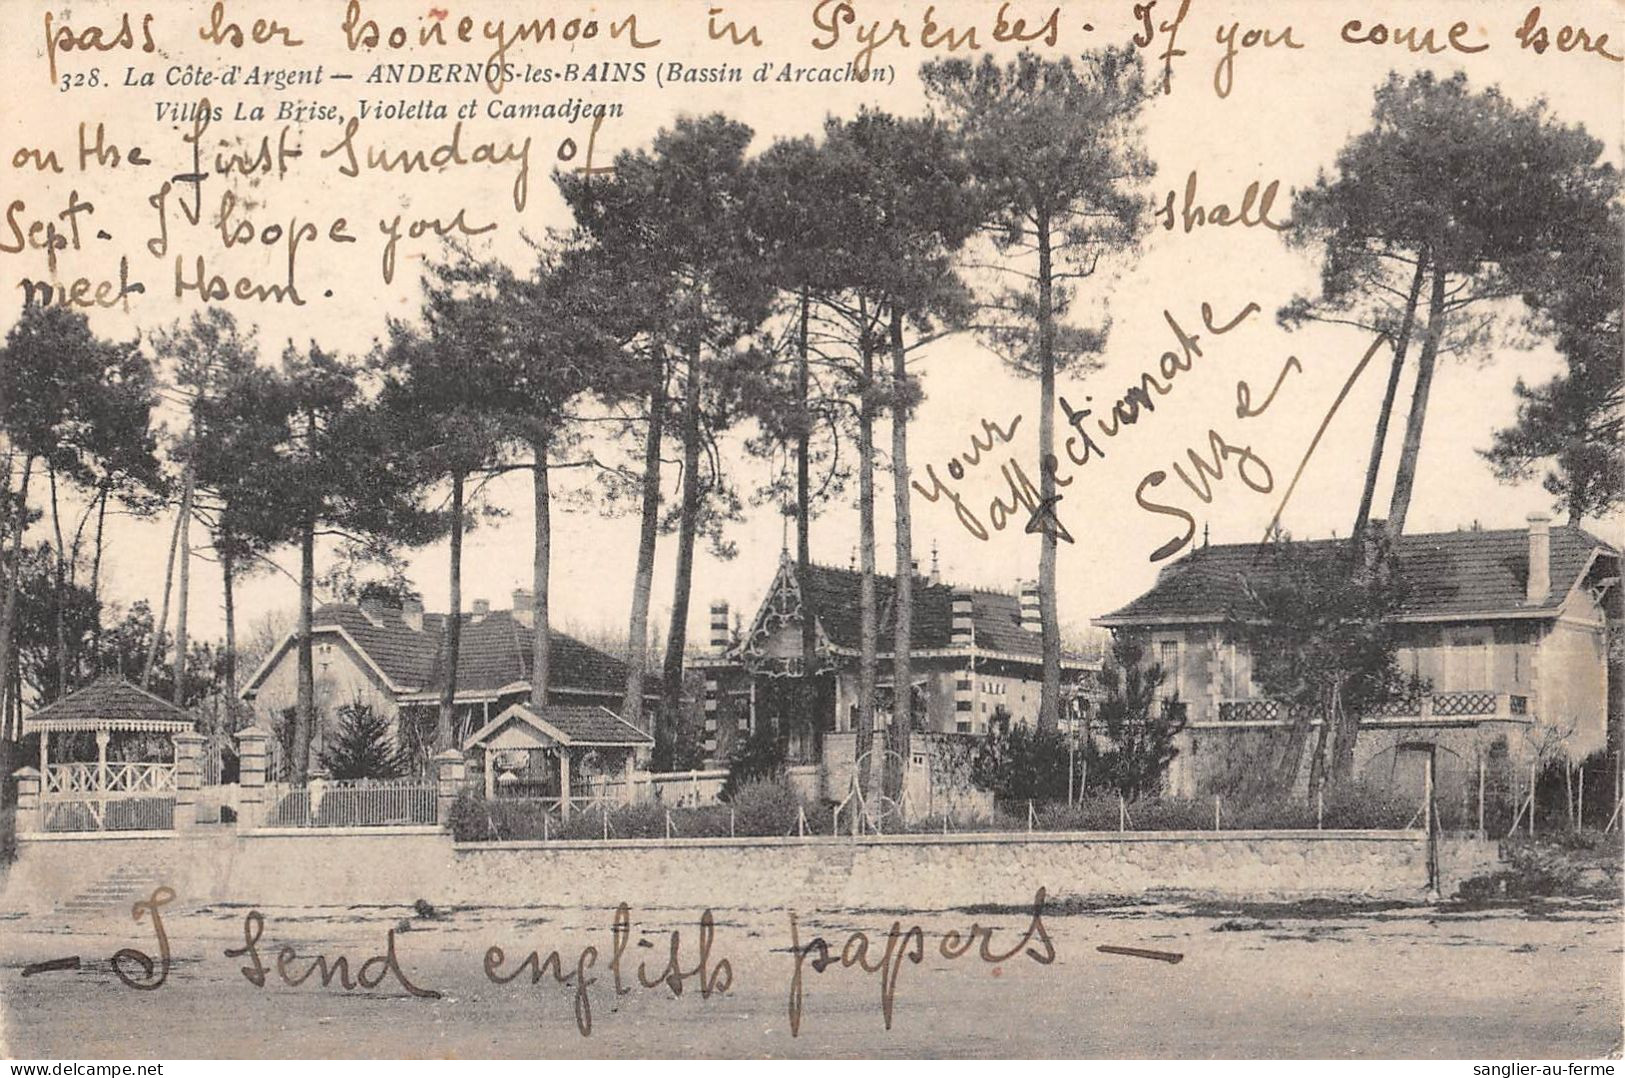 pass her honeymoon in Pyrénées. If you come here
328. La Côte-d'Argent — ANDERNOS-les-BAINS (Bassin d'Arcachon)
Villas La Brise, Violetta et Camadjean
on the first Sunday of
Sept. I hope you shall
meet them.
your
affectionate
Suze
- I send english papers -
sanglier-au-ferme